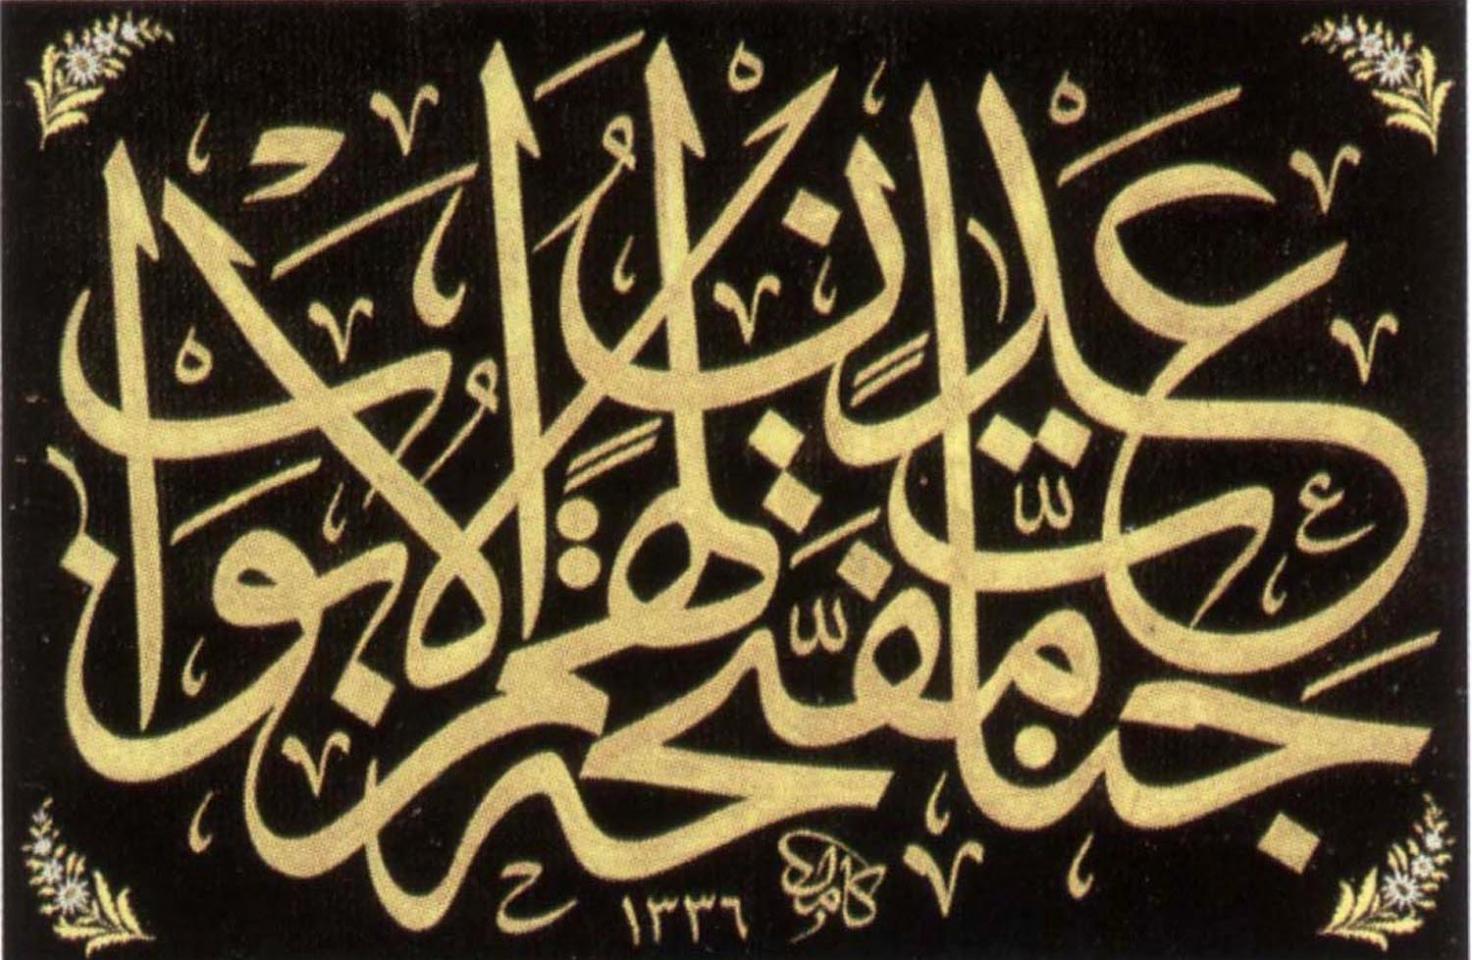 جَنَّاتِ عَدْنٍ مُفَتَّحَةً لَهُمُ الْأَبْوَابُ
١٣٣٦